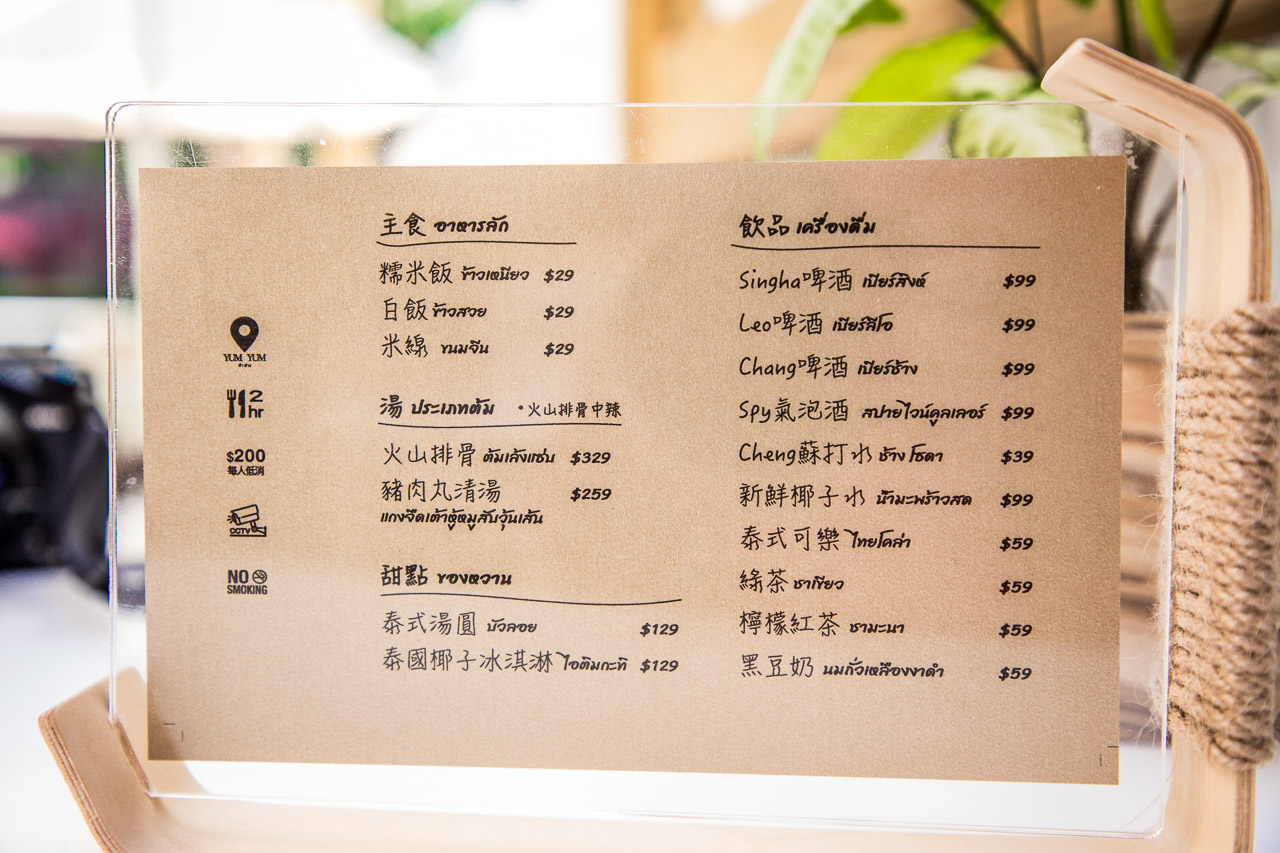 YUM YUM
2
hr
$200
每人低消
CCTV
NO
SMOKING
主食 อาหารลัก
糯米飯 ข้าวเหนียว $29
白飯 ข้าวสวย $29
米線 ขนมจีน $29
湯 ประเภทต้ม •火山排骨中辣
火山排骨 ต้มเล้งแซ่บ $329
豬肉丸清湯 $259
แกงจืดเต้าหู้หมูสับวุ้นเส้น
甜點 ของหวาน
泰式湯圓 บัวลอย $129
泰國椰子冰淇淋 ไอติมกะทิ $129
飲品 เครื่องดื่ม
Singha啤酒 เบียร์สิงห์ $99
Leo啤酒 เบียร์ลีโอ $99
Chang啤酒 เบียร์ช้าง $99
Spy氣泡酒 สปายไวน์คูลเลอร์ $99
Cheng蘇打水 ช้างโซดา $39
新鮮椰子水 น้ำมะพร้าวสด $99
泰式可樂 ไทยโคล่า $59
綠茶 ชาเขียว $59
檸檬紅茶 ชามะนา $59
黑豆奶 นมถั่วเหลืองงาดำ $59